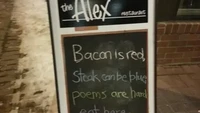 the Alex
restaurant
Bacon is red,
Steak can be blue
poems are hard
eat bacon